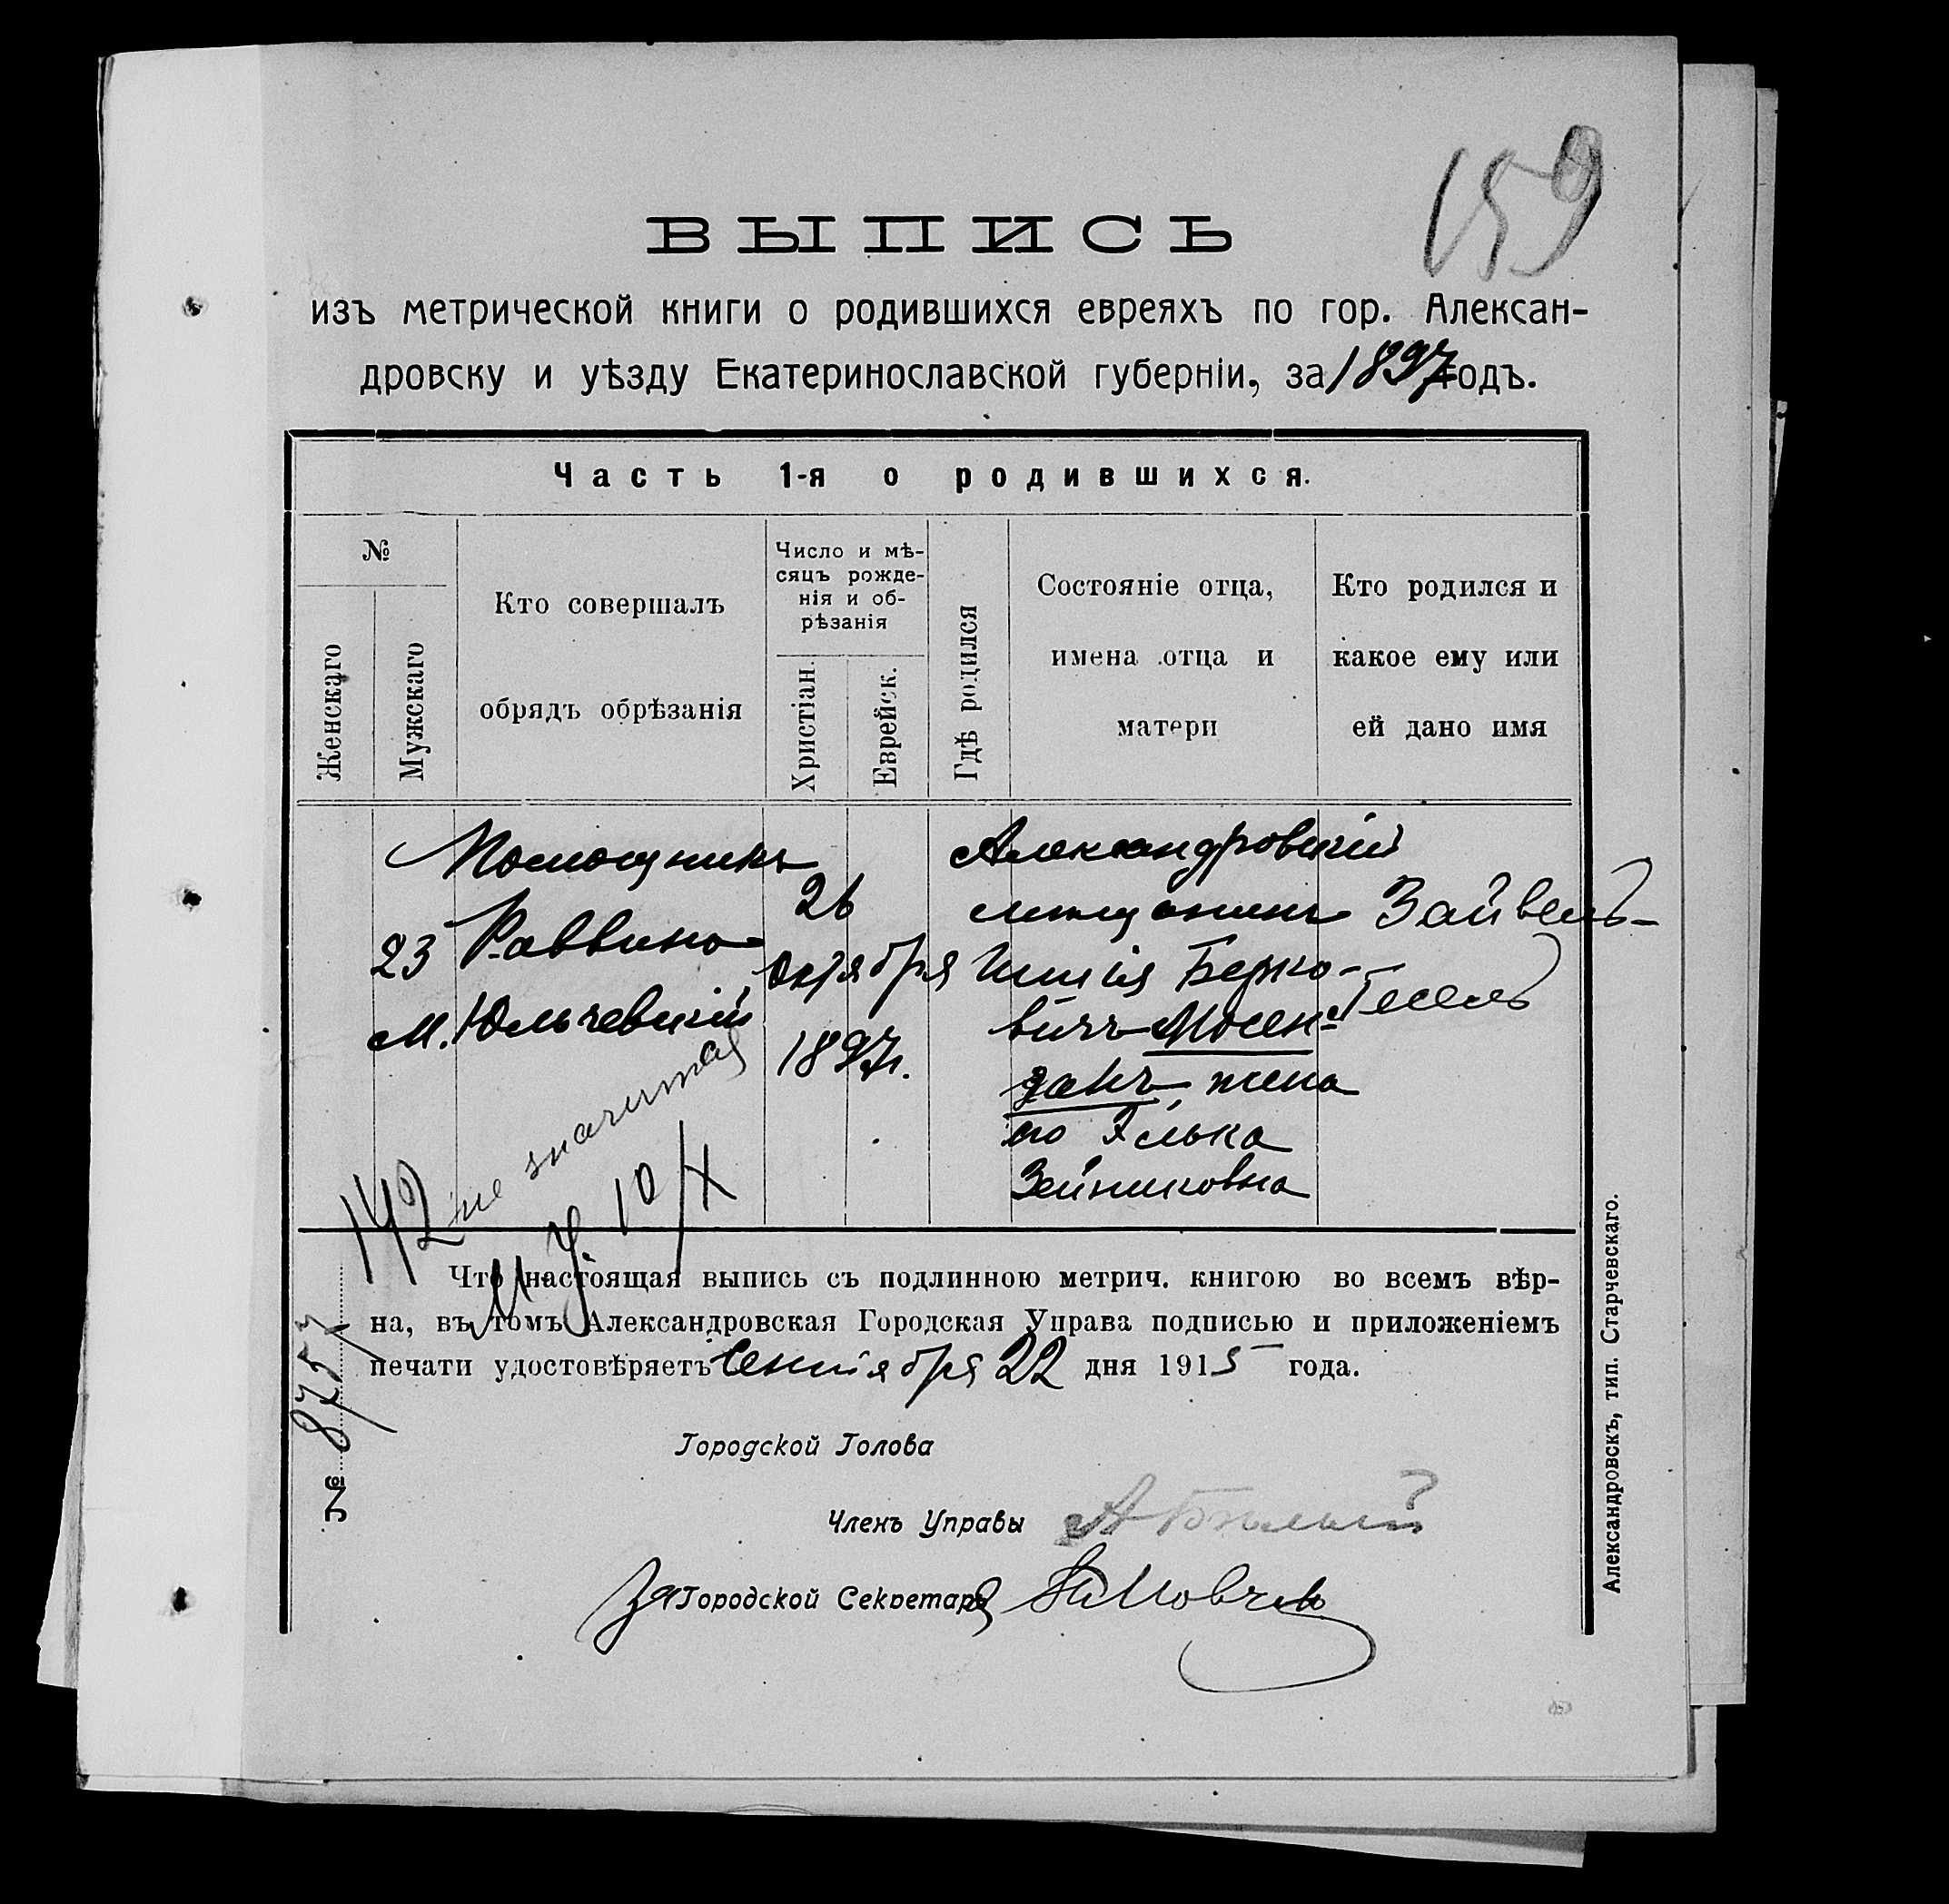 159
ВЫПИСЬ
изъ метрической книги о родившихся евреяхъ по гор. Алексан-
дровску и уѣзду Екатеринославской губерніи, за 1897 годъ.
Часть 1-я о родившихся.
№
Женскаго
Мужскаго
Кто совершалъ
обрядъ обрѣзанія
Число и мѣ-
сяцъ рожде-
нія и об-
рѣзанія
Христіан.
Еврейск.
Гдѣ родился
Состояніе отца,
имена отца и
матери
Кто родился и
какое ему или
ей дано имя
23
Помощникъ
Раввина
М. Юльчевскій
26
октября
1897 г.
Александровскій
мещанинъ
Берко-
вичъ Мосен-
данъ, жена
его Элька
Зейликовна
Зайвель-
Гесель
не значится
142
10/X
Что настоящая выпись съ подлинною метрич. книгою во всемъ вѣр-
на, въ томъ Александровская Городская Управа подписью и приложеніемъ
печати удостовѣряетъ Сентября 22 дня 1915 года.
№ 8757
Городской Голова
Членъ Управы
За Городской Секретарь
Александровскъ, тип. Старчевскаго.